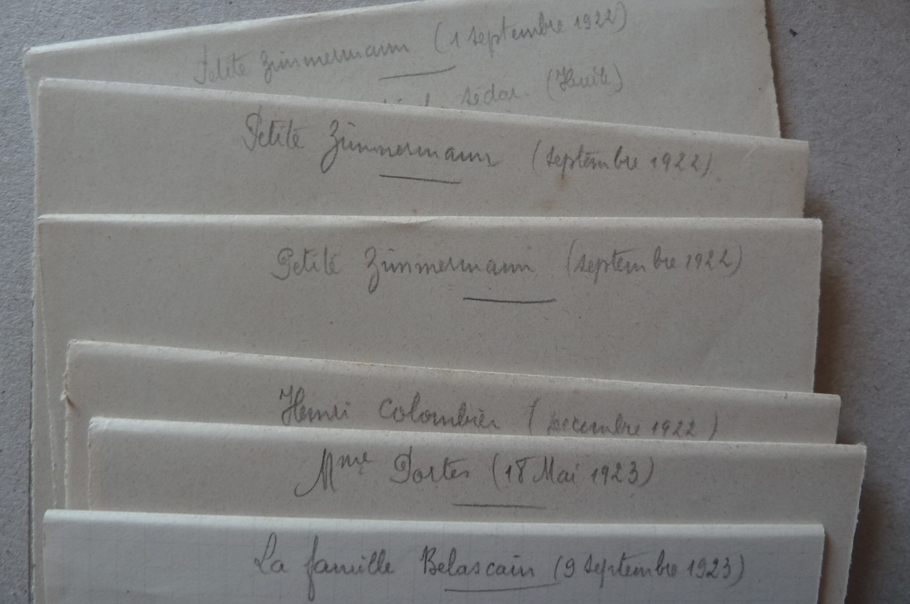 Petite Zimmermann (1 septembre 1922)
sédar (Huile)
Petite Zimmermann (septembre 1922)
Petite Zimmermann (septembre 1922)
Henri Colombier (Decembre 1922)
Mme Portes (18 Mai 1923)
La famille Belascain (9 septembre 1923)